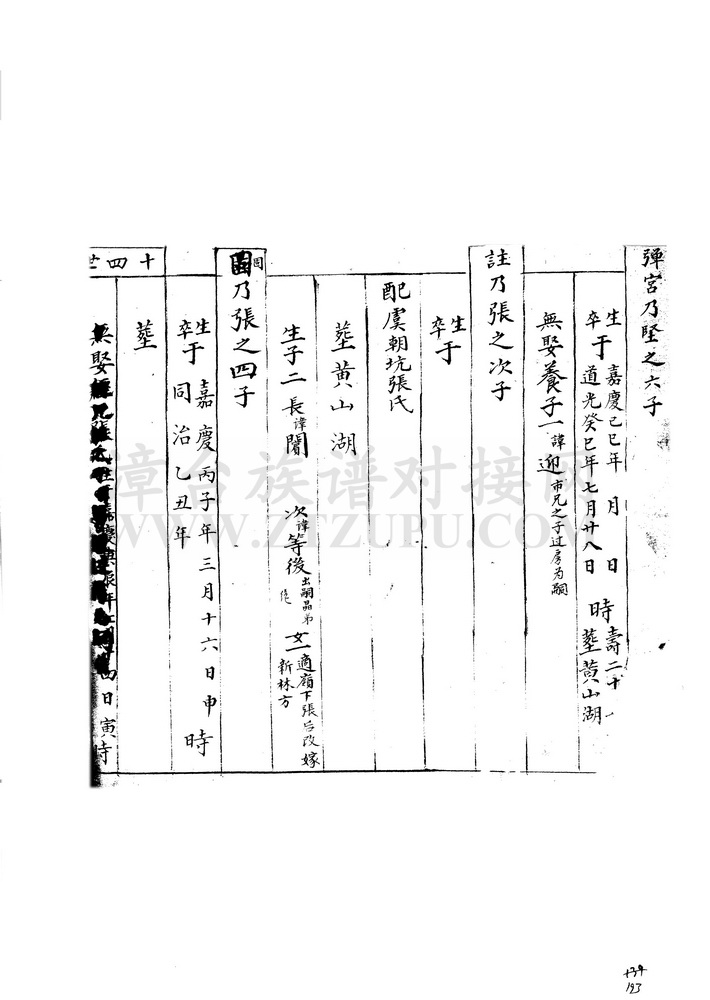 弹宮乃堅之六子
生于嘉慶己巳年 月 日 時壽二十一
卒于道光癸巳年七月廿八日 塟黃山湖
無娶養子一諱迎市兄之子过房为嗣
註乃張之次子
生卒于
配虞朝坑張氏
塟黃山湖
生子二長諱闇 次諱等後出嗣品弟 女一適嶺下張后改嫁新林方
乃張之四子
生于嘉慶丙子年三月十六日申時
卒于同治乙丑年
塟
無娶
日寅時
十四世
章台族谱对接网
WWW.ZTZUPU.COM
134
123